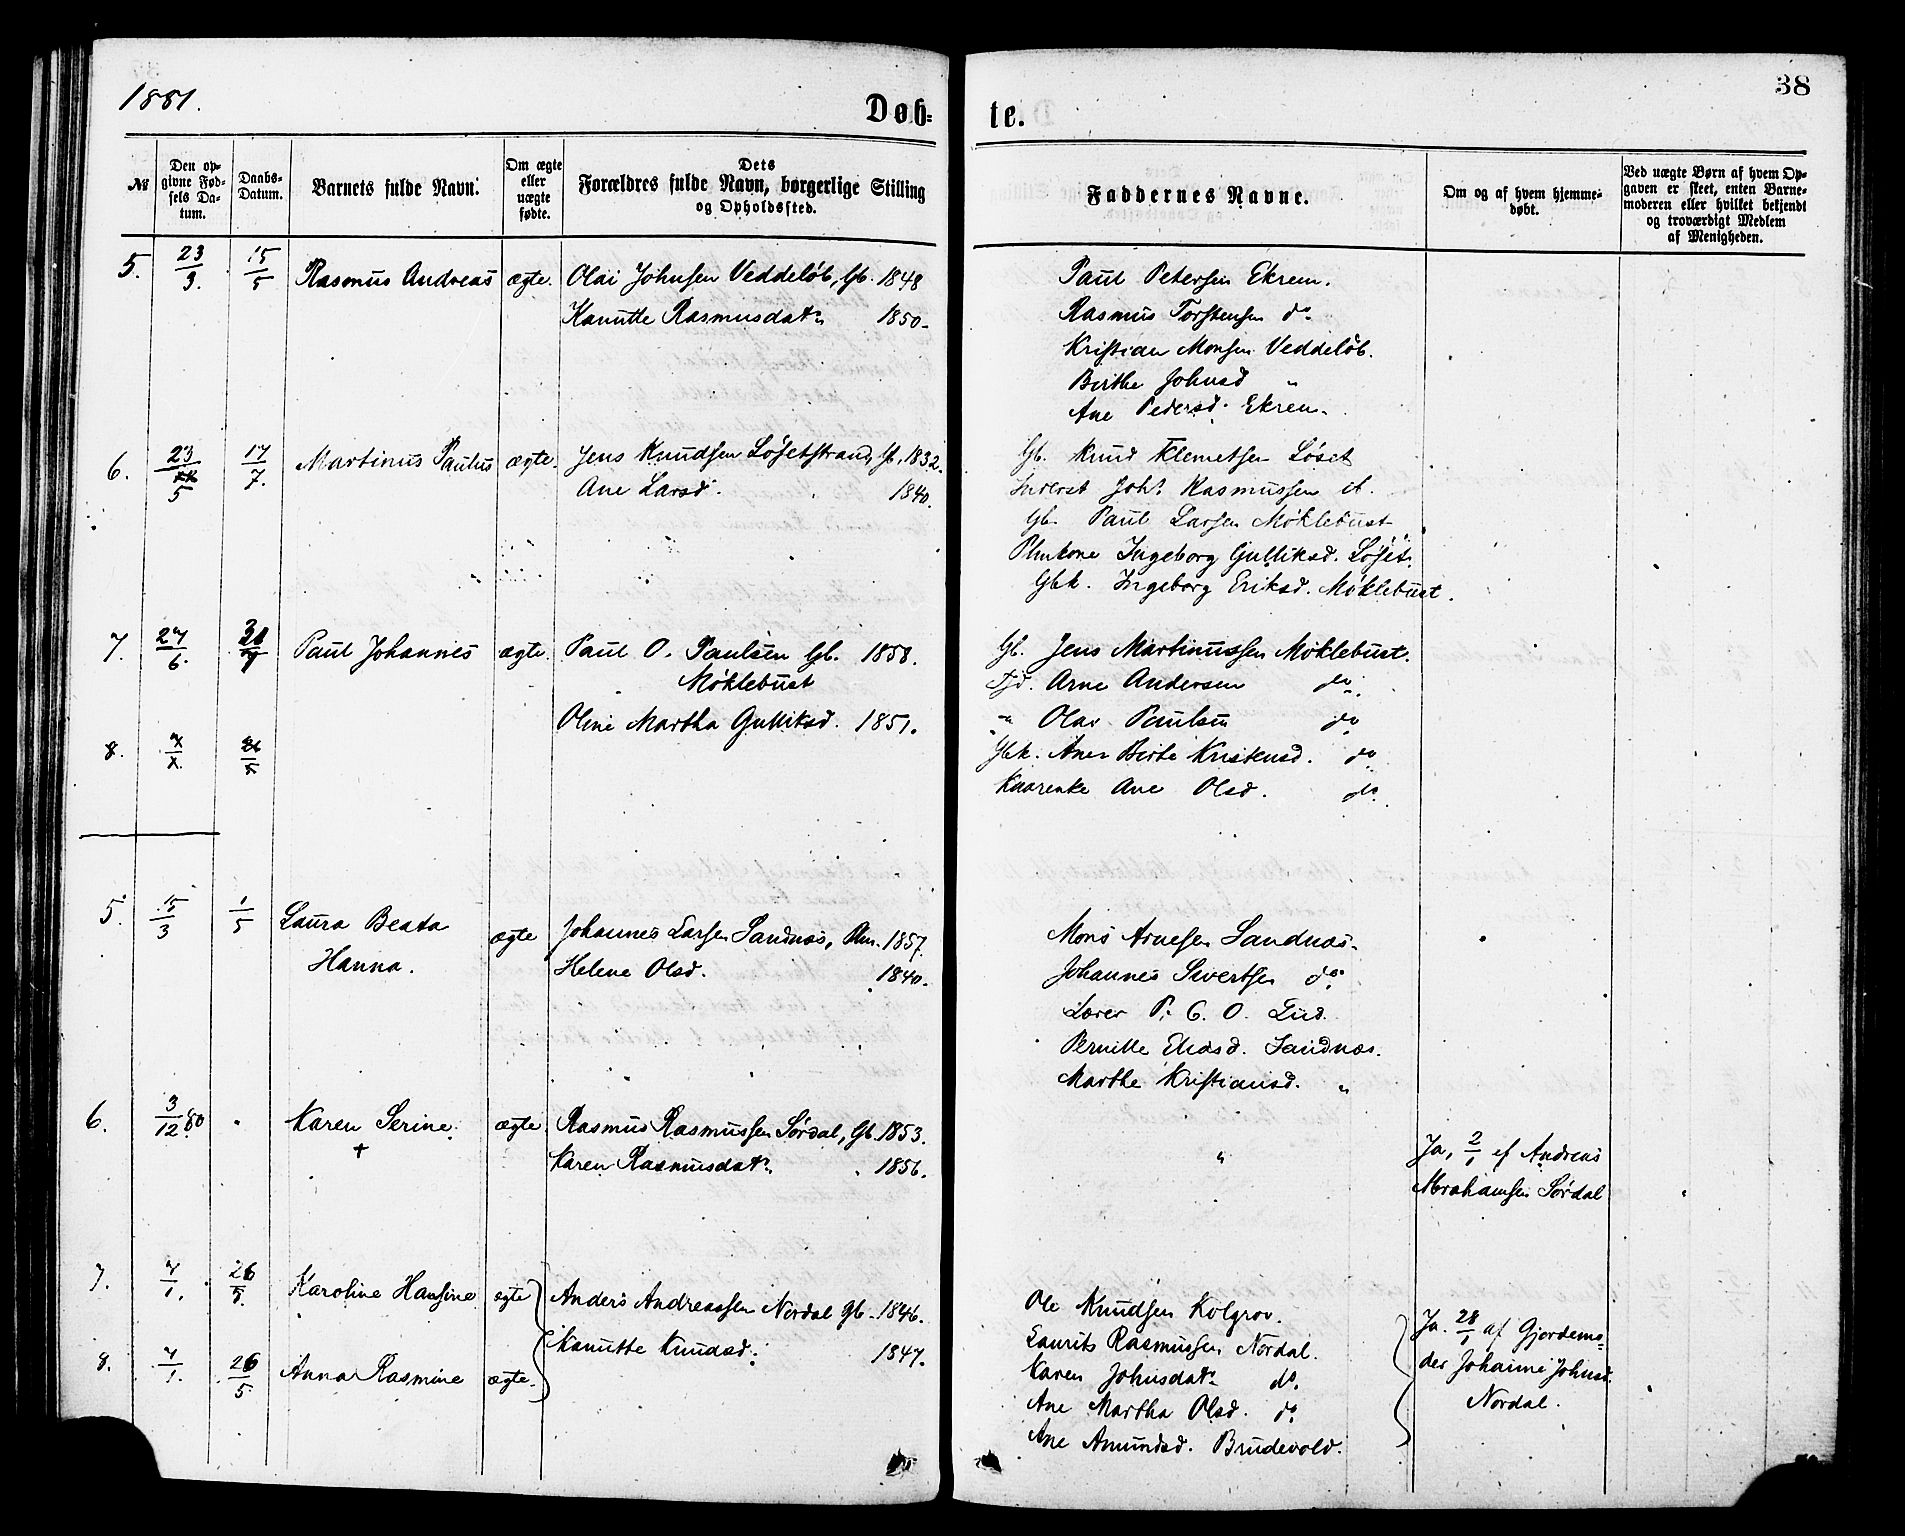 38
1881.
Døb-
te.
№
Den op-
givne Fød-
sels Da-
tum.
Daabs-
Datum.
Barnets fulde Navn.
Om ægte
eller
uægte
fødte.
Dets
Forældres fulde Navn, borgerlige Stilling
og Opholdssted.
Faddernes Navne.
Om og af hvem hjemme-
døbt.
Ved uægte Børn af hvem Op-
gaven er skeet, enten Barne-
moderen eller hvilket bekjendt
og troværdigt Medlem
af Menigheden.
5. 23/3. 15/5 Rasmus Andreas ægte. Olai Johnsen Veddeløb, Gb. 1848
Kanutte Rasmusdatr 1850.
Paul Petersen Ekrem.
Rasmus Torstensen do
Kristian Monsen Veddeløb.
Birthe Johnsd "
Ane Pedersd. Ekrem.
6. 23/5 17/7. Martinus Paulus ægte. Jens Knudsen Løsetstrand, Gb. 1832.
Ane Larsd. 1840.
Gb. Knud Klemetsen Løset
Inderst Johs Rasmussen ib.
Gb. Paul Larsen Møklebust
Plmkone Ingeborg Gulliksd. Løset.
Gbk. Ingeborg Eriksd. Møklebust.
7. 27/6. 31/7 Paul Johannes ægte. Paul O. Paulsen Gb. 1858.
Møklebust
Oline Martha Gulliksd. 1851.
Gb. Jens Martinussen Møklebust.
Tjd. Arne Andersen do.
" Olav Paulsen do
Gbk. Ane Birte Kristensd. do
Kaarenke Ane Olsd. do.
8.
5. 15/3 1/5 Laura Beata
Hanna. ægte Johannes Larsen Sandnæs, Plm. 1857.
Helene Olsd. 1840.
Mons Arnesen Sandnæs.
Johannes Sivertsen do.
Lærer P. C. O. Lid.
Pernille Eliasd. Sandnæs.
Marthe Kristiansd. "
6. 3/12 80 " Karen Serine. ægte Rasmus Rasmussen Sørdal, Gb. 1853.
+
Karen Rasmusdatr. 1856.
"
Ja, 2/1 af Andreas
Abrahamsen Sørdal
7. 7/1. 26/5. Karoline Hansine ægte Anders Andreassen Nordal Gb. 1846.
Kanutte Knudsd. 1847.
8. 7/1. 26/5 Anna Rasmine ægte.
Ole Knudsen Kolgrov.
Laurits Rasmussen Nordal.
Karen Johnsdatr do.
Ane Martha Olsd. do.
Ane Amundsd. Brudevold.
Ja. 28/1 af Gjordemo-
der Johanne Johnsd.
Nordal.